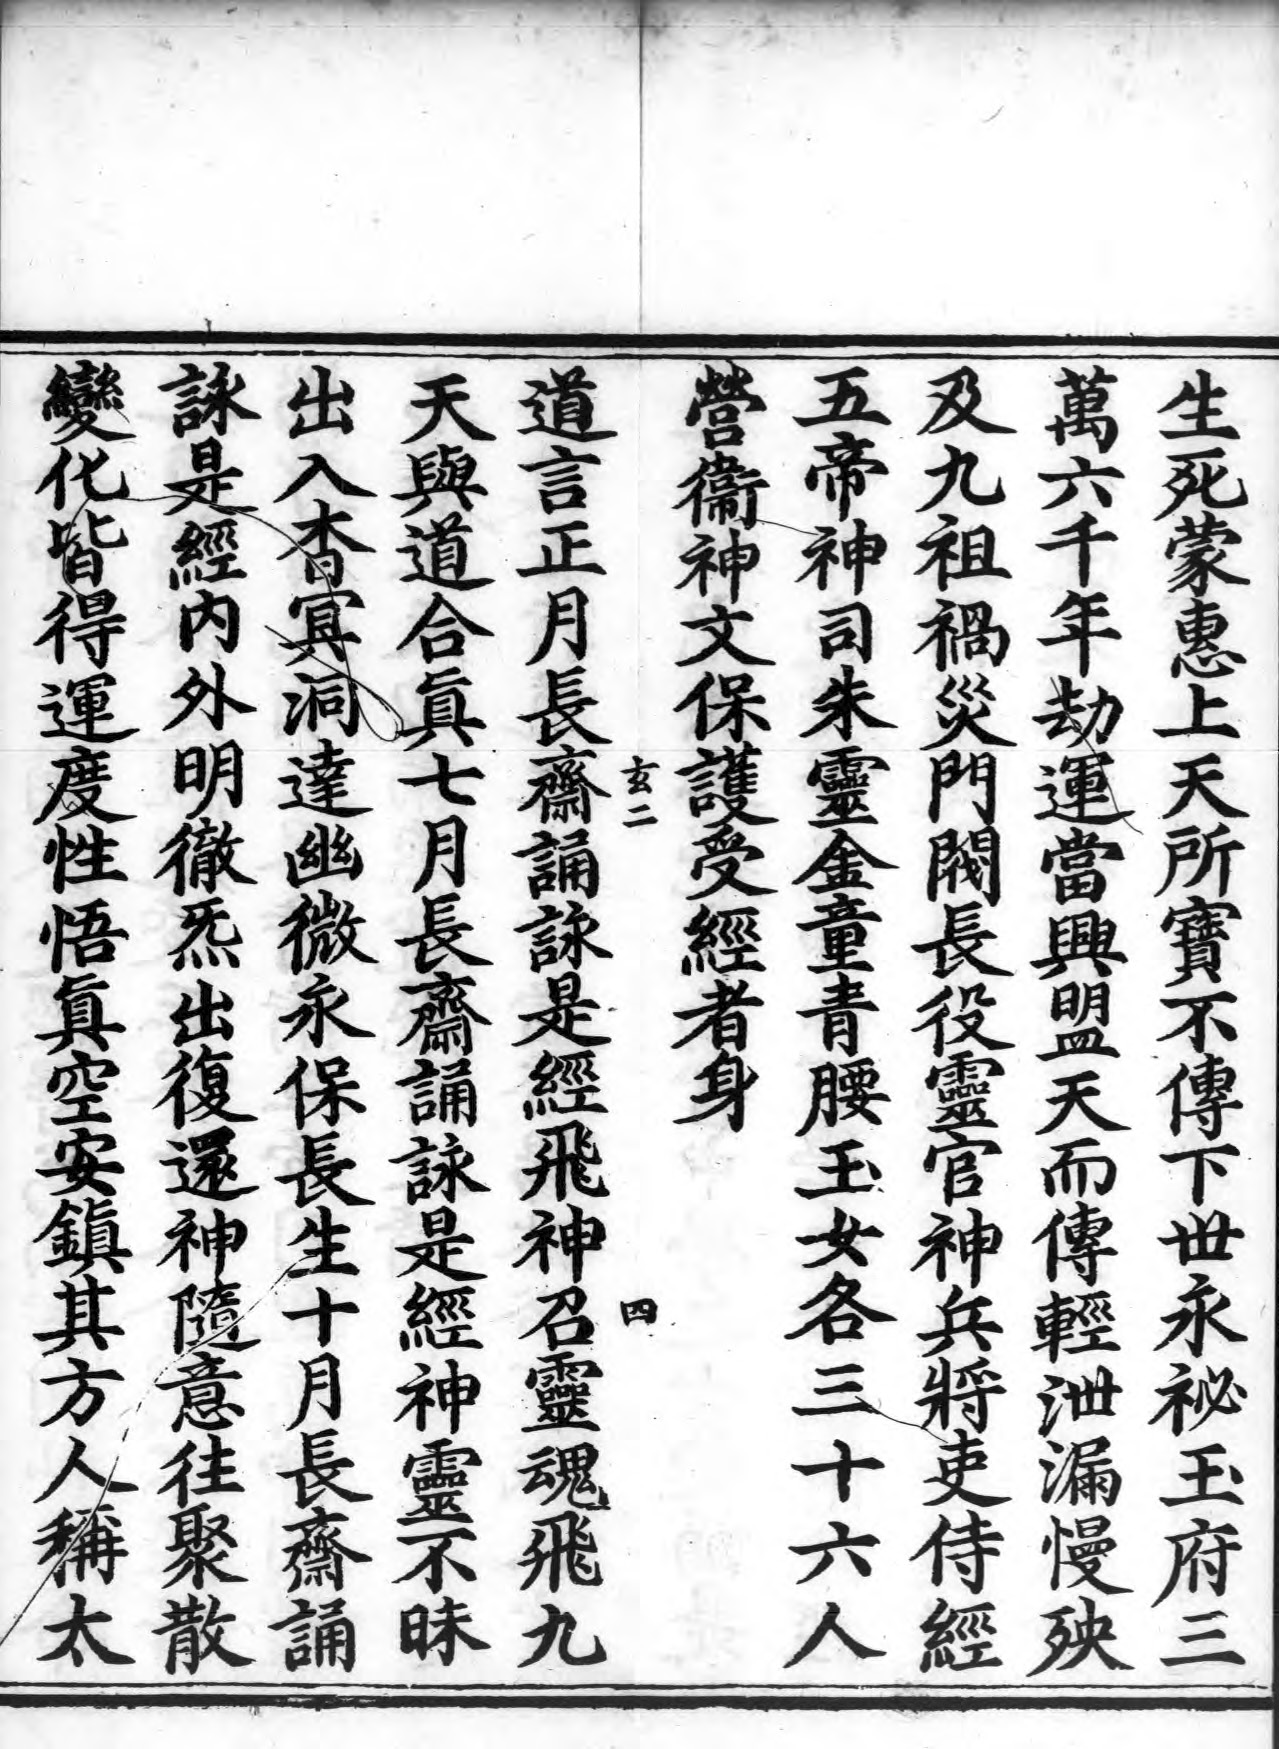 生死蒙惠上天所寶不傳下世永祕玉府三
萬六千年劫運當興盟天而傳輕泄漏慢殃
及九祖禍災門閥長役靈官神兵將吏侍經
五帝神司朱靈金童青腰玉女各三十六人
營衞神文保護受經者身
玄二 四
道言正月長齋誦詠是經飛神召靈魂飛九
天與道合眞七月長齋誦詠是經神靈不昧
出入杳冥洞達幽微永保長生十月長齋誦
詠是經內外明徹炁出復還神隨意往聚散
變化皆得運度性悟眞空安鎮其方人稱太